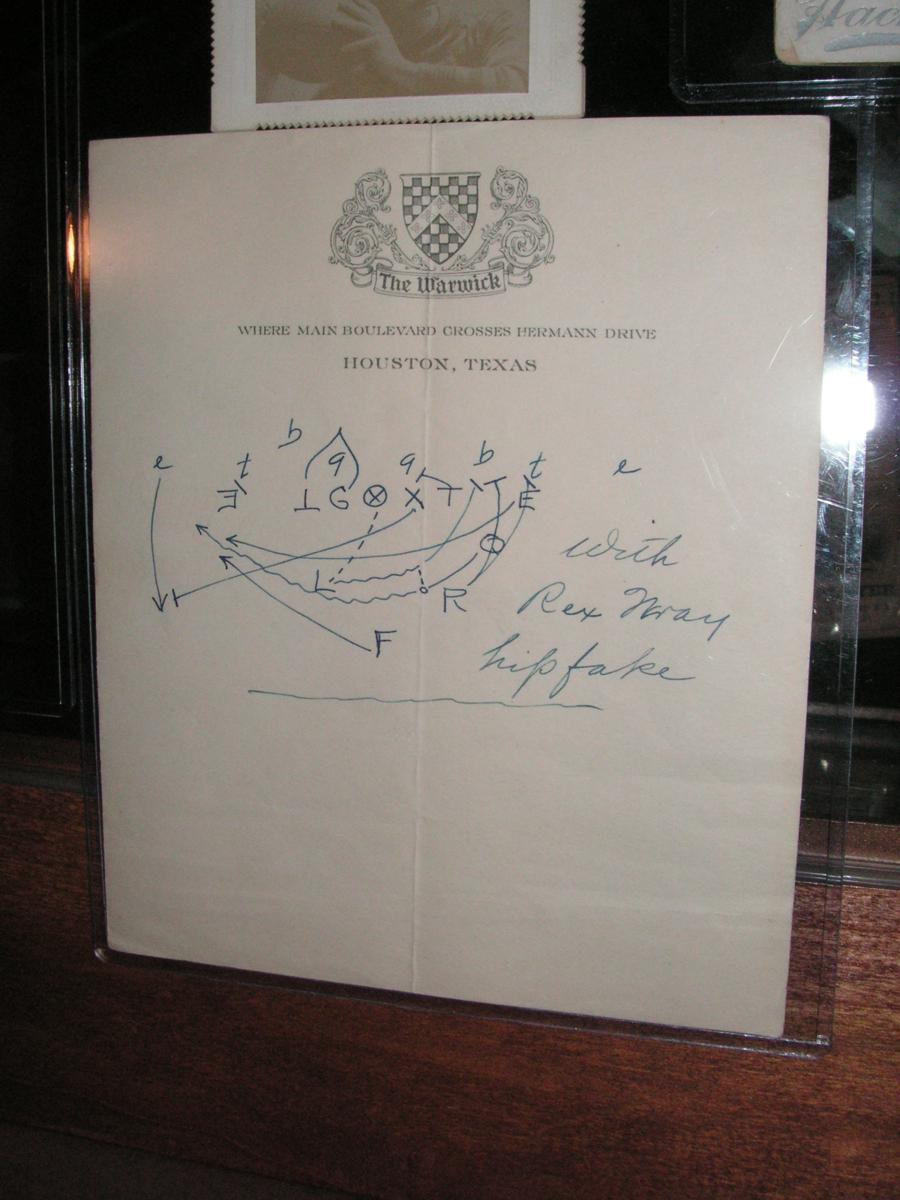 Hac
The Warwick
WHERE MAIN BOULEVARD CROSSES HERMANN DRIVE
HOUSTON, TEXAS
b g g b
e t t e
E T G X X T E
L R
F
With
Rex Wray
hip fake